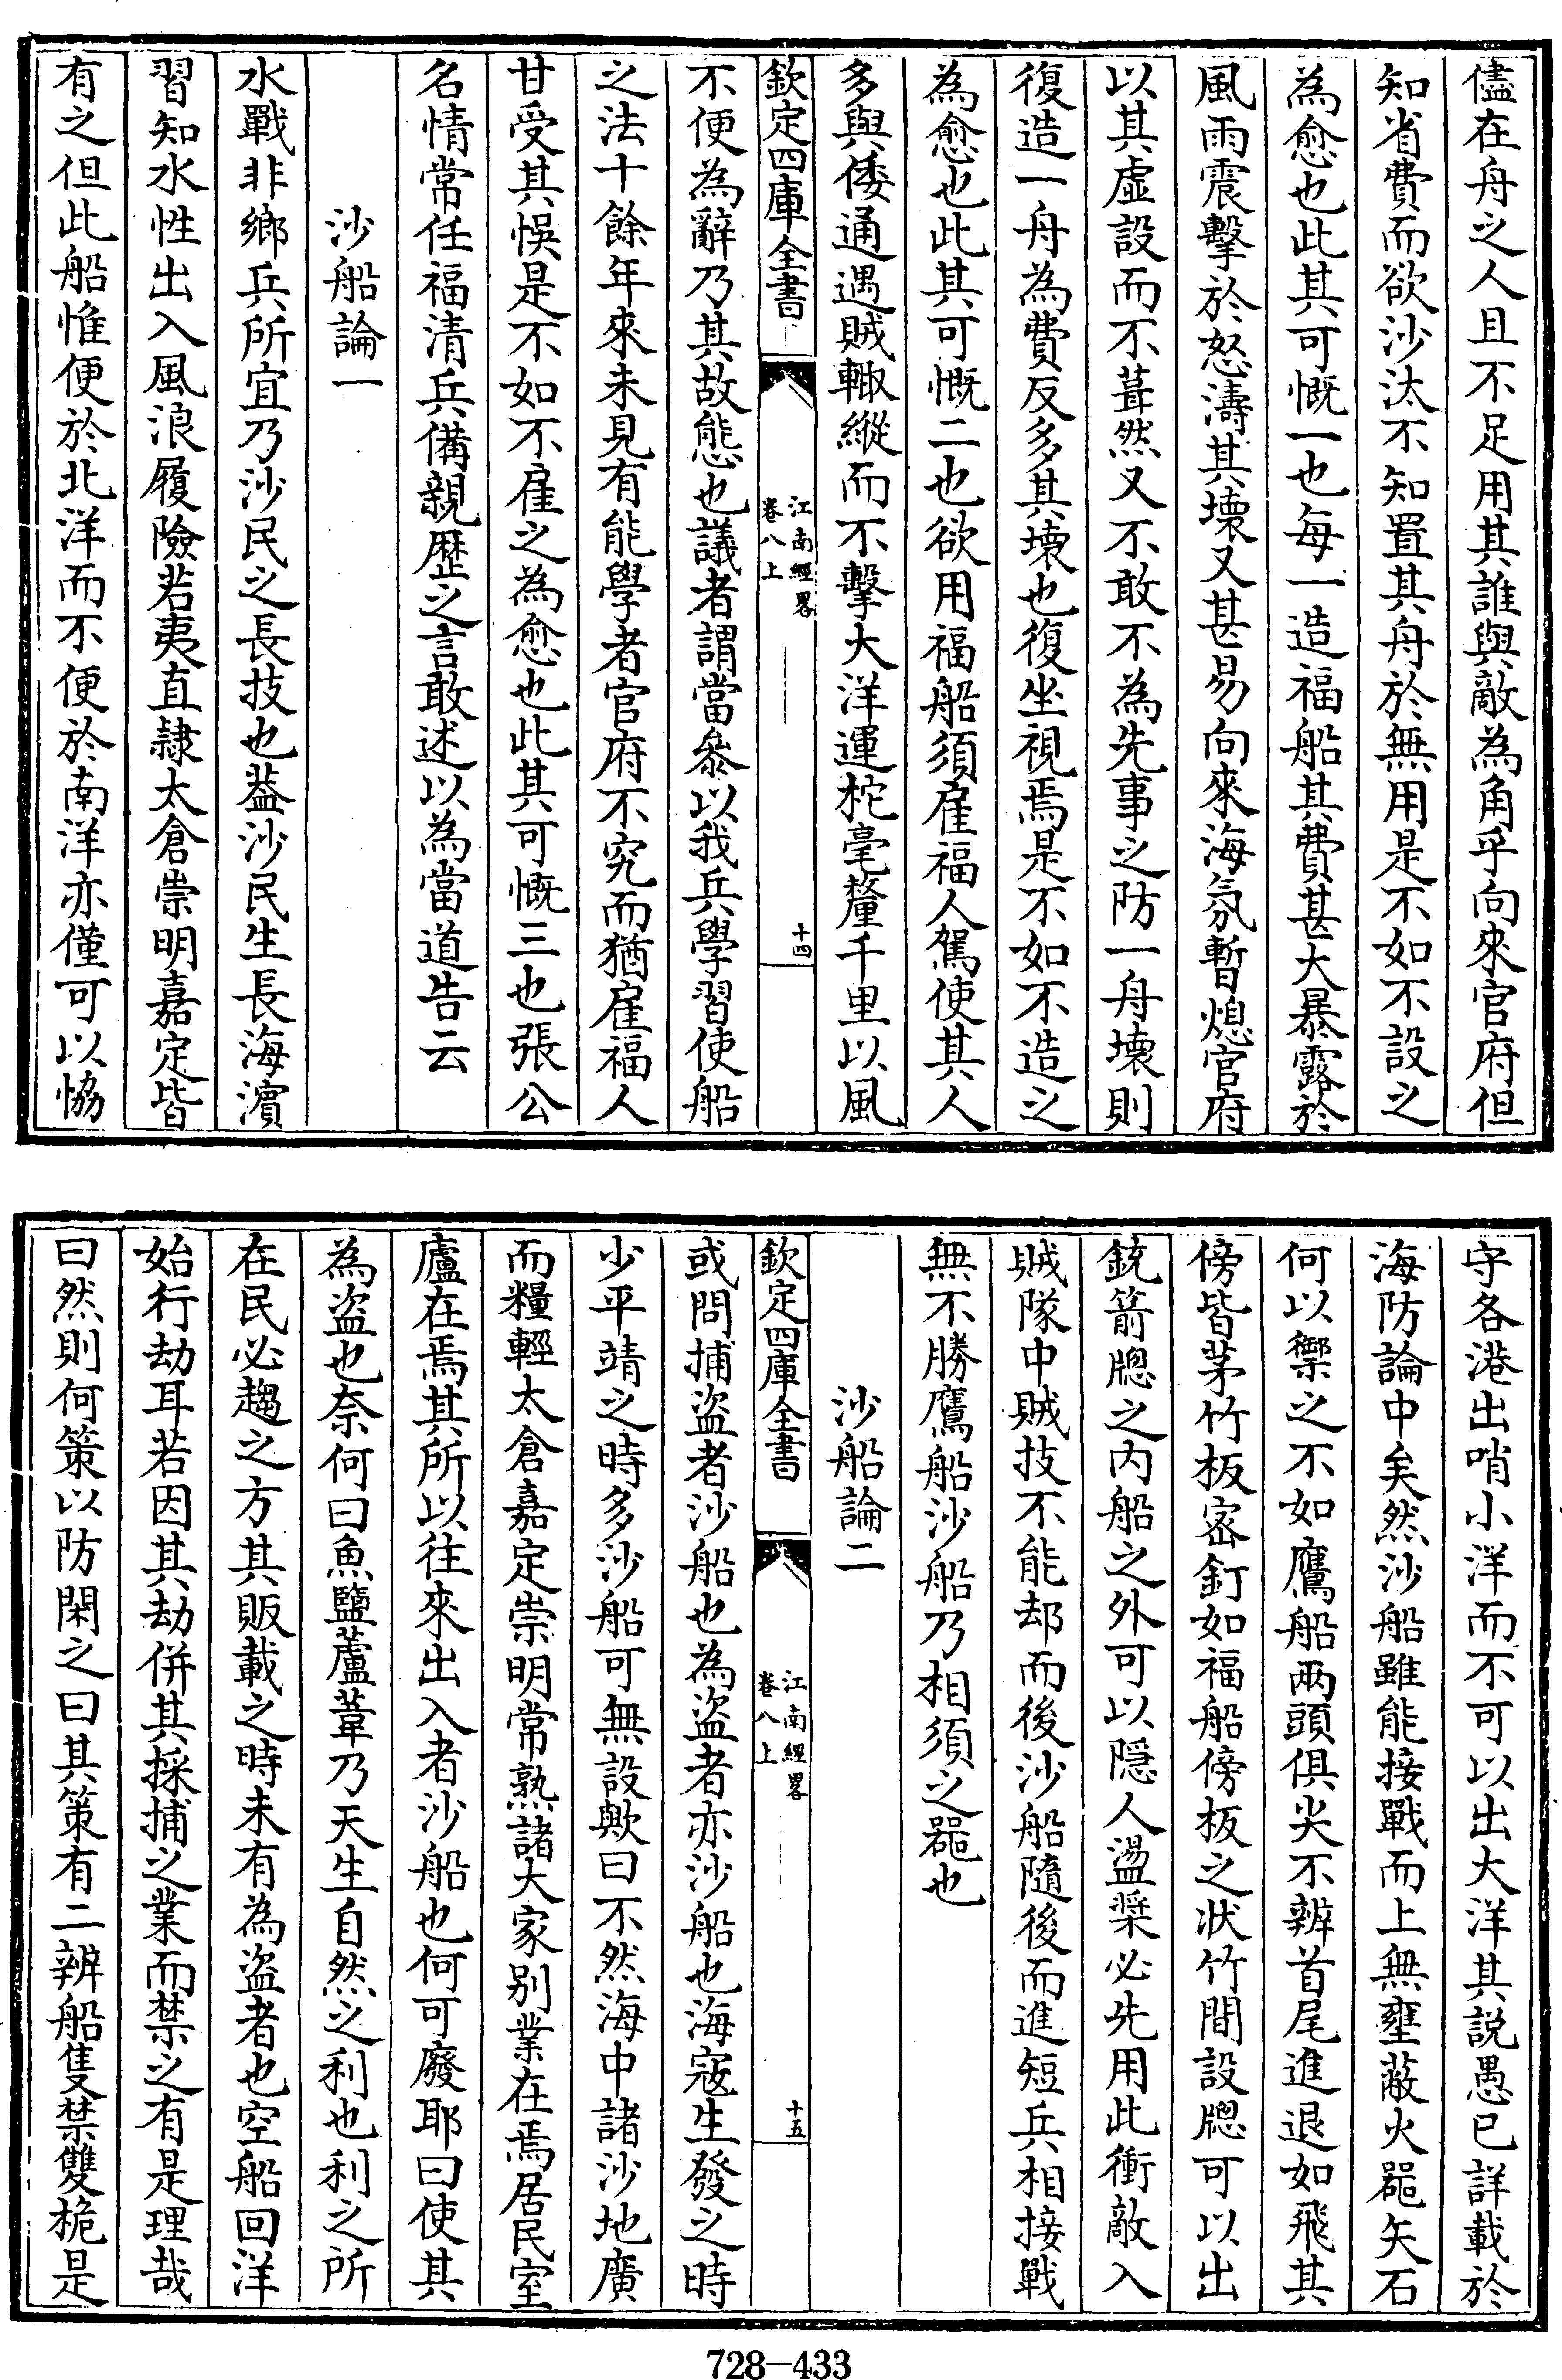 儘在舟之人且不足用其誰與敵為角乎向來官府但
知省費而欲沙汰不知置其舟於無用是不如不設之
為愈也此其可慨一也每一造福船其費甚大暴露於
風雨震擊於怒濤其壊又甚易向來海氛暫熄官府
以其虛設而不葺然又不敢不為先事之防一舟壊則
復造一舟為費反多其壊也復坐視焉是不如不造之
為愈也此其可慨二也欲用福船須雇福人駕使其人
多與倭通遇賊輙縱而不擊大洋運柁毫釐千里以風
欽定四庫全書
江南經畧
卷八上
十四
不便為辭乃其故態也議者謂當叅以我兵學習使船
之法十餘年來未見有能學者官府不究而猶雇福人
甘受其悞是不如不雇之為愈也此其可慨三也張公
名情常任福清兵備親歴之言敢述以為當道告云
沙船論一
水戰非鄉兵所宜乃沙民之長技也葢沙民生長海濵
習知水性出入風浪履險若夷直隷太倉崇明嘉定皆
有之但此船惟便於北洋而不便於南洋亦僅可以恊
守各港出哨小洋而不可以出大洋其説愚已詳載於
海防論中矣然沙船雖能接戰而上無壅蔽火噐矢石
何以禦之不如鷹船兩頭俱尖不辨首尾進退如飛其
傍皆茅竹板宻釘如福船傍板之状竹間設牎可以出
銃箭牎之内船之外可以隠人盪槳必先用此衝敵入
賊隊中賊技不能却而後沙船隨後而進短兵相接戰
無不勝鷹船沙船乃相須之噐也
沙船論二
欽定四庫全書
江南經畧
卷八上
十五
或問捕盜者沙船也為盜者亦沙船也海宼生發之時
少平靖之時多沙船可無設歟曰不然海中諸沙地廣
而糧輕太倉嘉定崇明常熟諸大家别業在焉居民室
廬在焉其所以往來出入者沙船也何可廢耶曰使其
為盜也奈何曰魚鹽蘆葦乃天生自然之利也利之所
在民必趨之方其販載之時未有為盜者也空船回洋
始行劫耳若因其劫併其採捕之業而禁之有是理哉
曰然則何策以防閑之曰其策有二辨船隻禁雙桅是
728-433